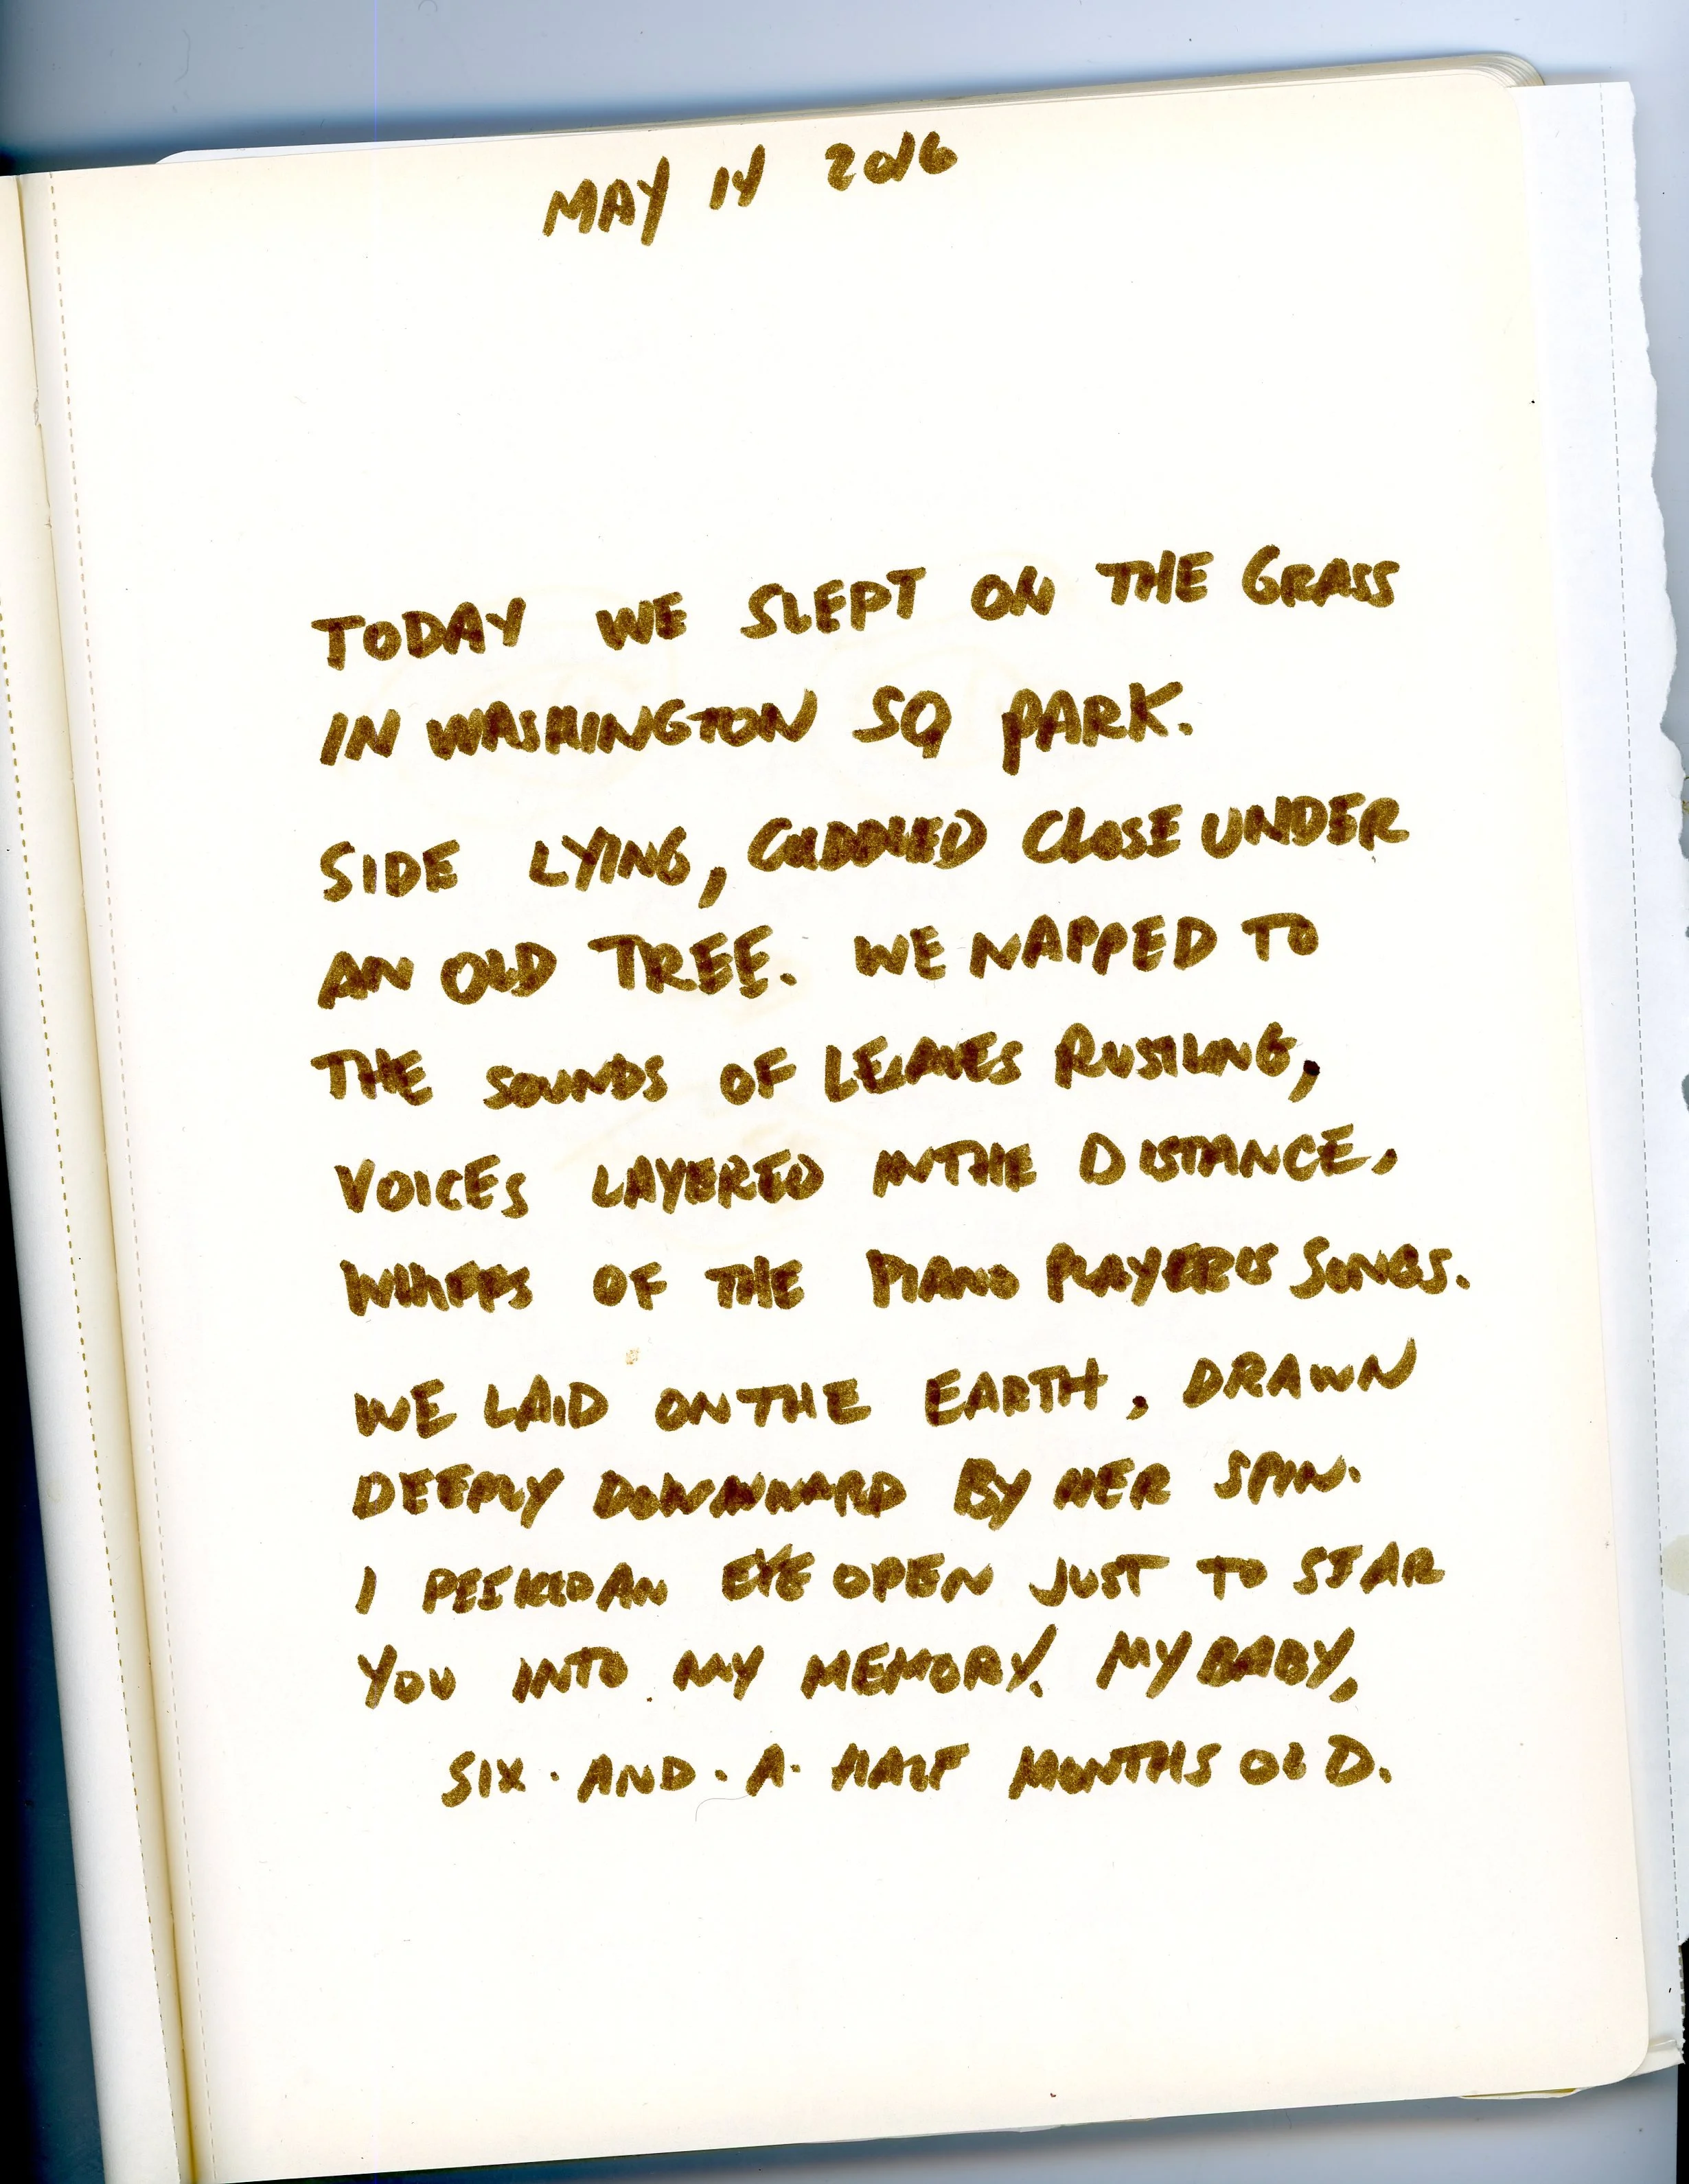 MAY 14 2016
TODAY WE SLEPT ON THE GRASS
IN WASHINGTON SQ PARK.
SIDE LYING, CUDDLED CLOSE UNDER
AN OLD TREE. WE NAPPED TO
THE SOUNDS OF LEAVES RUSTLING,
VOICES LAYERED IN THE DISTANCE,
WHIFFS OF THE PIANO PLAYER'S SONGS.
WE LAID ON THE EARTH, DRAWN
DEEPLY DOWNWARD BY HER SPIN.
I PEEKED AN EYE OPEN JUST TO SEAR
YOU INTO MY MEMORY. MY BABY,
SIX·AND·A·HALF MONTHS OLD.